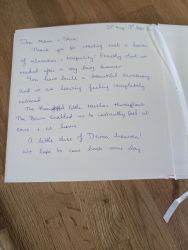 31st Aug - 3rd Sept
Dear Mann + Steve
Thank you for creating such a haven
of relaxation + tranquility. Exactly what we
needed after a very busy summer.
You have built a beautiful sanctuary
and we are leaving feeling completely
restored.
The thoughtful little touches throughout
The Barn enabled us to instantly feel at
ease + at home.
A little slice of Devon heaven!
We hope to come back some day